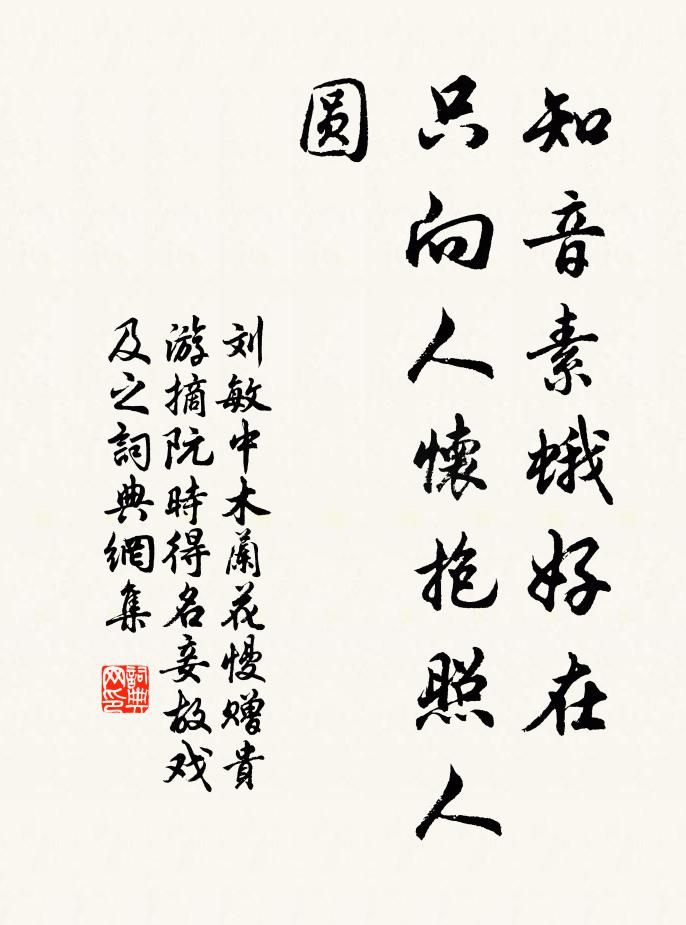 知音素蛾好在
只向人懷抱照人
圆
刘敏中木蘭花慢赠貴
游摘阮時得名妾故戏
及之詞典網集
詞典
网印